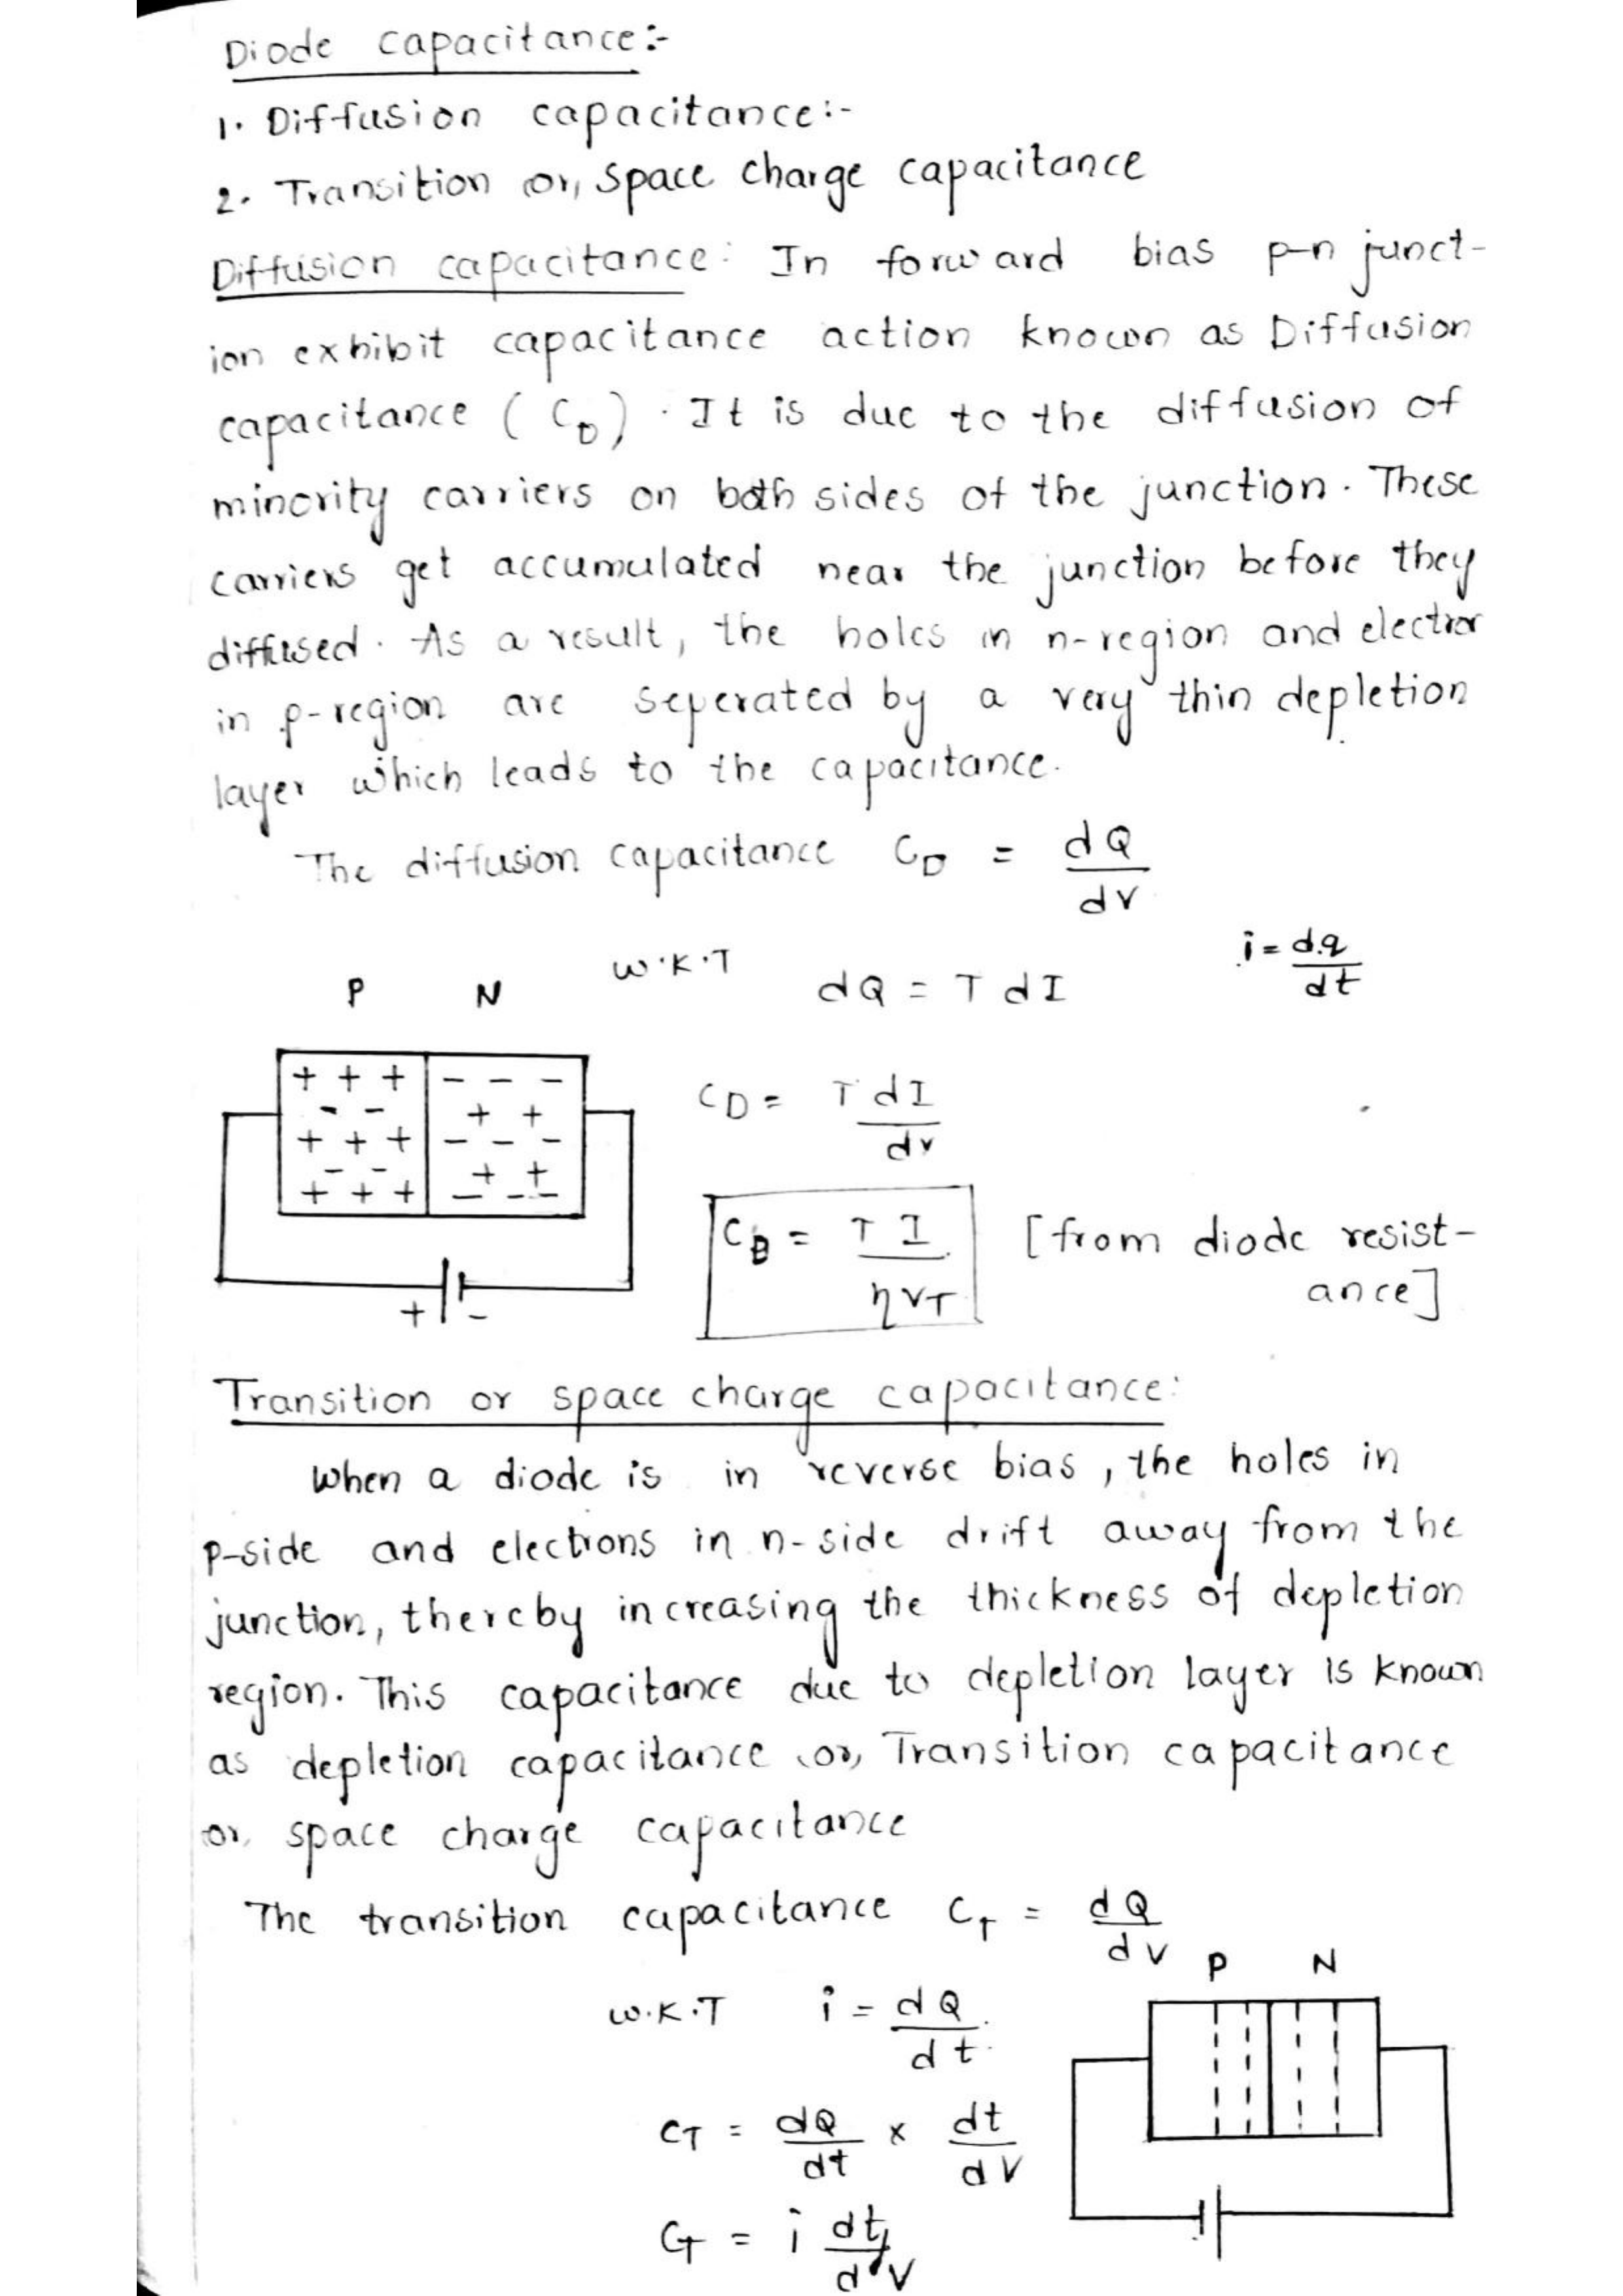 Diode capacitance:-
1. Diffusion capacitance:-
2. Transition or, space charge capacitance
Diffusion capacitance: In forward bias p-n junct-
ion exhibit capacitance action known as Diffusion
capacitance (C_D). It is due to the diffusion of
minority carriers on both sides of the junction. These
carriers get accumulated near the junction before they
diffused. As a result, the holes in n-region and electron
in p-region are seperated by a very thin depletion
layer which leads to the capacitance.
The diffusion capacitance C_D = dQ/dV
W.K.T dQ = T dI i = dq/dt
P N
+ + + - - -
- - + +
+ + + - - -
- - + +
+ + + - - -
+ -
C_D = T dI/dv
C_D = T I/ηV_T [from diode resist-
ance]
Transition or space charge capacitance:
When a diode is in reverse bias, the holes in
p-side and electrons in n-side drift away from the
junction, thereby increasing the thickness of depletion
region. This capacitance due to depletion layer is known
as depletion capacitance or, Transition capacitance
or, space charge capacitance
The transition capacitance C_T = dQ/dV
P N
W.K.T i = dQ/dt
C_T = dQ/dt × dt/dV
C_T = i dt/dV